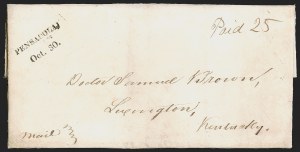 PENSACOLA
Oct. 30.
Paid 25
Doctor Samuel Brown,
Lexington,
Kentucky.
Mail